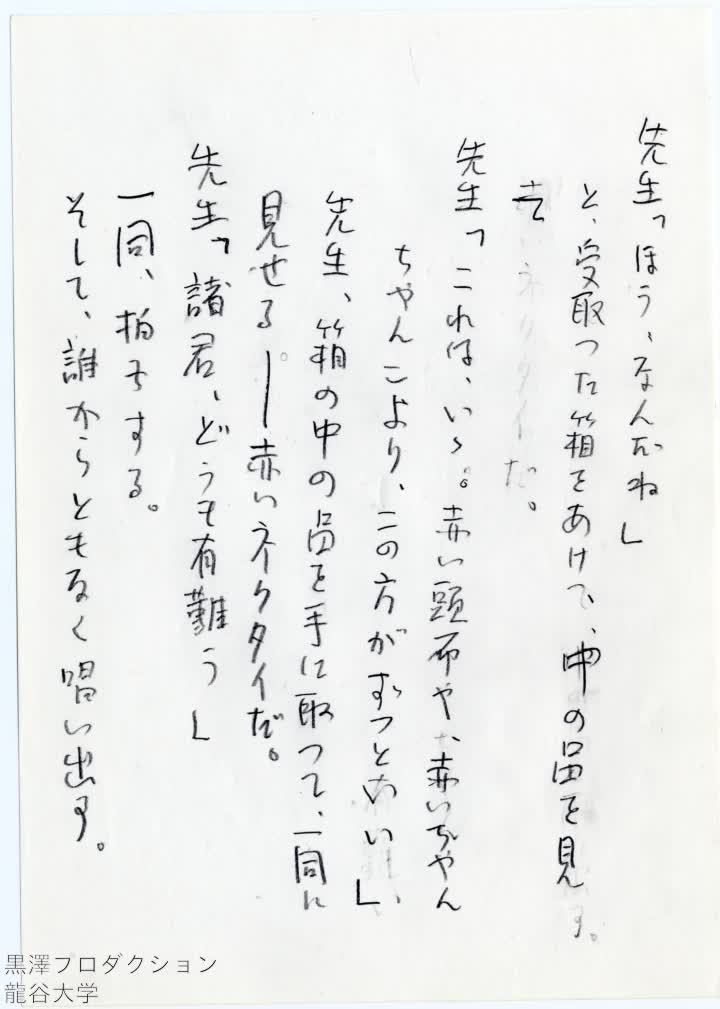 先生「ほう、なんだね」
と、受取った箱をあけて、中の品を見
て
先生「これは、いゝ。赤い頭巾や、赤いちゃん
ちゃんこより、この方がずっといい」
先生、箱の中の品を手に取って、一同に
見せる――赤いネクタイだ。
先生「諸君、どうも有難う」
一同、拍手する。
そして、誰からともなく唱い出す。
黒澤プロダクション
龍谷大学